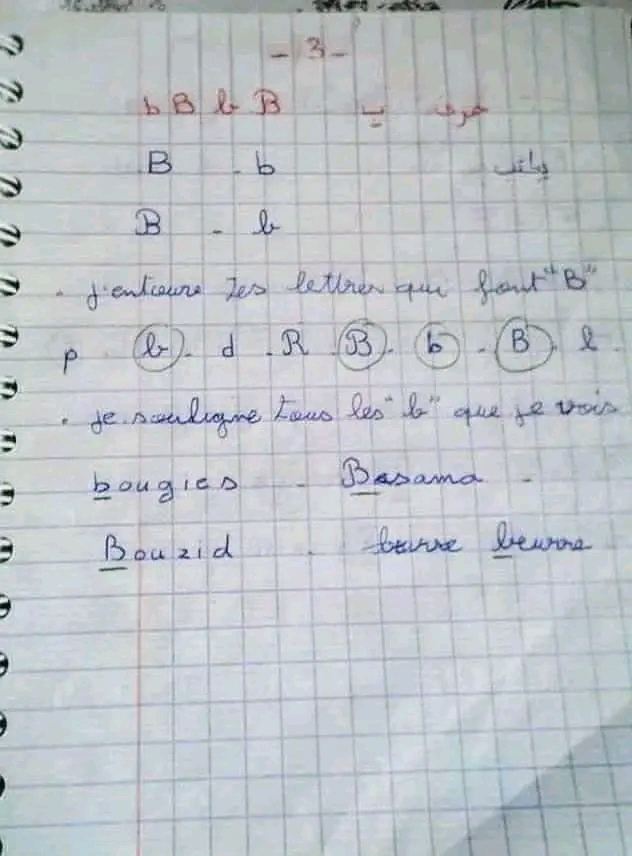 - 3 -
b B b B ب حرف
B - b
B - b
. j'entoure les lettres qui font "B"
p b . d . R . B . b . B . l .
. je souligne tous les "b" que je vois
bougies - Basama -
Bouzid . beurre